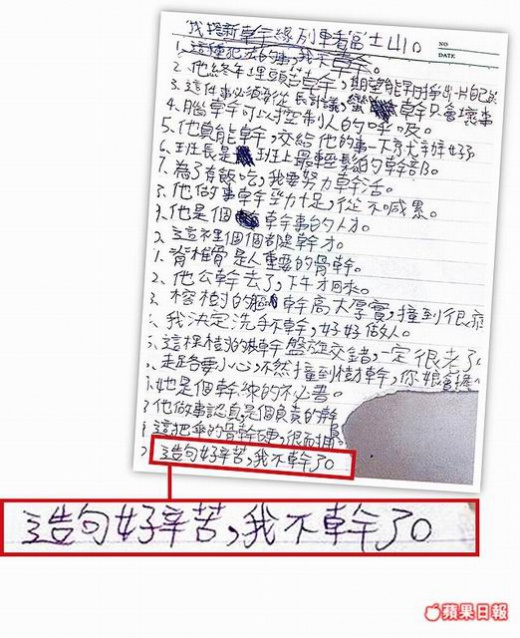 我搭新幹線列車看富士山。
NO
DATE
1.這種犯法的事,我不幹。
2.他終年埋頭苦幹,期望能夠掙出一片自己的
3.這件事必須要從長計議,蠻幹只會壞事
4.腦幹可以控制人的呼吸。
5.他真能幹,交給他的事一下就辦好
6.班長是班上最輕鬆的幹部。
7.為了有飯吃,我要努力幹活。
8.他做事幹勁十足,從不喊累。
9.他是個幹事的人才。
這裡個個都是幹才。
1.脊椎骨是人重要的骨幹。
2.他公幹去了,下午才回來。
3.榕樹的樹幹高大厚實,撞到很
我決定洗手不幹,好好做人。
這棵樹的樹幹盤旋交錯,一定很老了
走路要小心,不然撞到樹幹,你娘會擔
她是個幹練的祕書。
他做事認真,是個負責的幹
這把傘的骨幹硬,很耐用。
造句好辛苦,我不幹了。
造句好辛苦,我不幹了。
蘋果日報